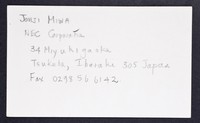 JUNJI MIWA
NEC Corporation
34 Miyukigaoka
Tsukuba, Ibaraki 305 Japan
Fax 0298 56 6142